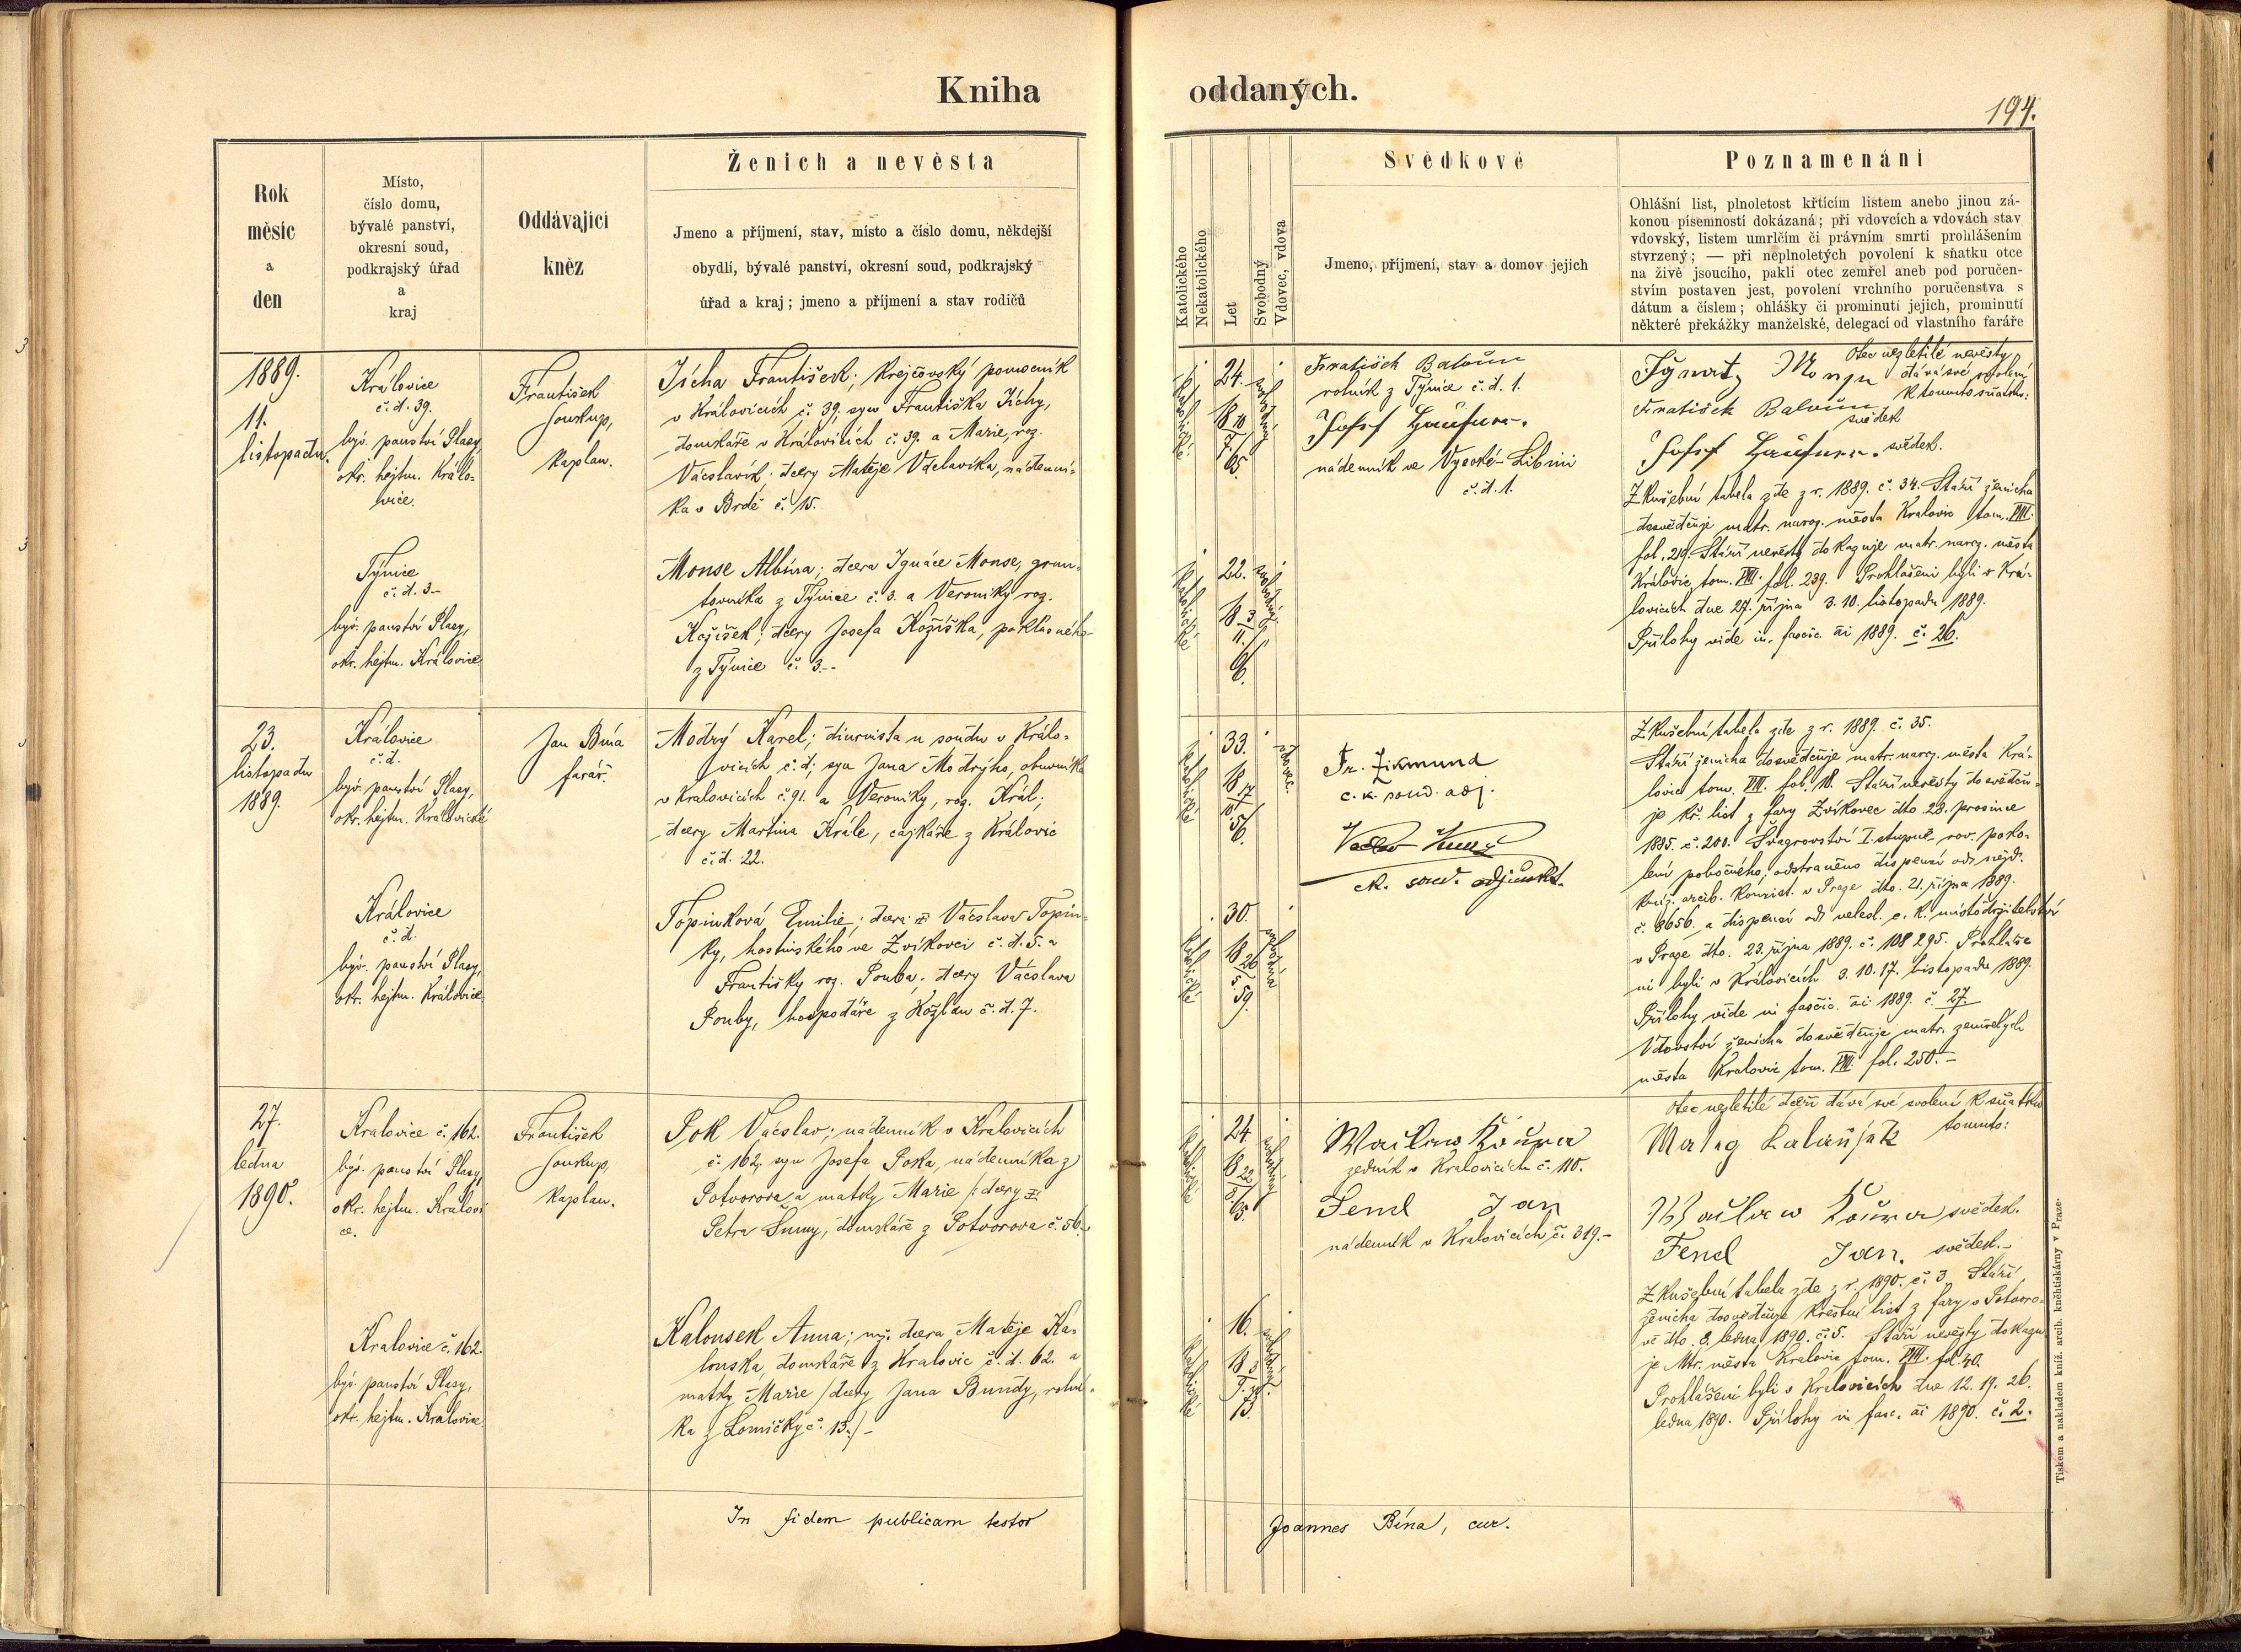 Kniha oddaných.
194.
Rok
měsíc
a
den
Místo,
číslo domu,
bývalé panství,
okresní soud,
podkrajský úřad
a
kraj
Oddávající
kněz
Ženich a nevěsta
Jmeno a příjmení, stav, místo a číslo domu, někdejší
obydlí, bývalé panství, okresní soud, podkrajský
úřad a kraj; jmeno a příjmení a stav rodičů
Katolického
Nekatolického
Let
Svobodný
Vdovec, vdova
Svědkové
Jmeno, příjmení, stav a domov jejich
Poznamenání
Ohlášní list, plnoletost křtícím listem anebo jinou zá-
konou písemností dokázaná; při vdovcích a vdovách stav
vdovský, listem umrlčím či právním smrti prohlášením
stvrzený; — při neplnoletých povolení k sňatku otce
na živě jsoucího, pakli otec zemřel aneb pod poručen-
stvím postaven jest, povolení vrchního poručenstva s
dátum a číslem; ohlášky či prominutí jejich, prominutí
některé překážky manželské, delegací od vlastního faráře
1889.
11.
listopadu.
Královice
č. d. 39.
býv. panství Plasy,
okr. hejtm. Králo-
vice.
František
Soukup,
kaplan.
Jícha František; krejčovský pomocník
v Královicích č. 39, syn Františka Jíchy,
domkáře v Královicích č. 39. a Marie, roz.
Vácslavík; dcery Matěje Václavíka, nádenní-
ka v Brdě č. 15.
Týnice
č. d. 3.-
býv. panství Plasy,
okr. hejtm. Královice
Monse Albína; dcera Ignáce Monse, grun-
tovníka z Týnice č. 3. a Veroniky roz.
Kožíšek; dcery Josefa Kožíška, poklasného
z Týnice č. 3.-
katolické
24.
18 18/7. 65.
svobodný
Fratišek Baloun
rolník z Týnice č. d. 1.
Josef
nádenník ve Vysoké-Libini
č. d. 1.
katolické
22.
18 3/11. 6
svobodný.
Otec nezletilé nevěsty
dává své svolení
k tomuto sňatku:
Ignatz Monse
Fratišek Baloun
svědek
Josef svědek.
Zkušební tabela zde z r. 1889. č. 34. Stáří ženicha
dosvědčuje matr. naroz. města Kralovic tom. VIII.
fol. 219. Stáří nevěsty dokazuje matr. naroz. města
Královic, tom. VIII. fol. 239. Prohlášeni byli v Krá-
lovicích dne 27. října 3. 10. listopadu 1889.
Přílohy vide in. fascic. ai 1889. č. 26.
23.
listopadu
1889.
Královice
č. d.
býv. panství Plasy,
okr. hejtm. Královické
Jan Bína
farář.
Modrý Karel; diurnista u soudu v Králo-
vicích č. d; syn Jana Modrýho, obuvníka
v Kralovicích č. 91. a Veroniky, roz. Král;
dcery Martina Krále, cajkáře z Královic
č. d. 22.
Královice
č. d.
býv. panství Plasy,
okr. hejtm. Královice
Topinková Emilie; dcera Vácslava Topin-
ky, hostinského ve Zvíkovci č. d. 5. a
Františky roz. Pouba; dcery Vácslava
Pouby, hospodáře z Kožlan č. d. 7.
katolické
33.
18 17/10. 56.
vdovec.
Fr. Zikmund
c. k. soud. adj.
Václav
ck. soud. adjunkt.
katolické
30.
18 26/5. 59.
svobodná
Zkušební tabela zde z r. 1889. č. 35.
Stáří ženicha dosvědčuje matr. naroz. města Krá-
lovic tom. VIII. fol. 18. Stáří nevěsty dosvědču-
je kř. list z fary Zvíkovec dto. 28. prosince
1885. č. 200. Švagrovství I. stupně rov. poko-
lení pobočného, odstraněno dispensí od nejd.
kníž. arcib. konsist. v Praze dto. 21. října 1889.
č. 8656. a dispensí od veled. c. k. místodržitelství
v Praze dto. 23. října 1889. č. 108295. Prohláše
ni byli v Královicích 3. 10. 17. listopadu 1889.
Přílohy vide in fascic. ai 1889. č. 27.
Vdovství ženicha dosvědčuje matr. zemřelých
města Kralovic tom. VIII. fol. 250.-
27.
ledna
1890.
Kralovice č. 162.
býv. panství Plasy,
okr. hejtm. Královi
ce.
František
Soukup,
kaplan.
Pok Vácslav; nádenník v Kralovicích
č. 162, syn Josefa Poka, nádenníka z
Potvorova, a matky Marie /: dcery
Petra Šumy, domkáře z Potvorova č. 56.
Kralovice č. 162.
býv. panství Plasy,
okr. hejtm. Kralovice
Kalousek Anna; mž. dcera Matěje Ka-
louska, domkáře z Kralovic č. d. 62. a
matky Marie /dcery Jana Bundy, rolní-
ka z Lomičky č. 13./-
katolické
24
18 22/8. 65.
svobodný
Waclaw Kočura
zedník v Kralovicích č. 110.
Fencl Jan
nádenník v Kralovicích č. 319.-
katolické
16.
73.
svobodná.
Otec nezletilé dceři dává své svolení k sňatku
tomuto:
Matag Kalausek
Waclaw Kočura svědek.
Fencl Jan. svědek.-
Zkušební tabela zde z r. 1890. č. 3. Stáří
ženicha dosvědčuje křestní list z fary v Potvoro-
vě dto. 8. ledna 1890. č. 5. Stáří nevěsty dokazu
je Mtr. města Kralovic tom. VIII. fol. 40.
Prohlášeni byli v Kralovicích dne 12. 19. 26.
ledna 1890. Přílohy in fasc. ai 1890. č. 2.
In fidem publicam testor Joannes Bína, cur.
Tiskem a nakladem kníž. arcib. knihtiskárny v Praze.